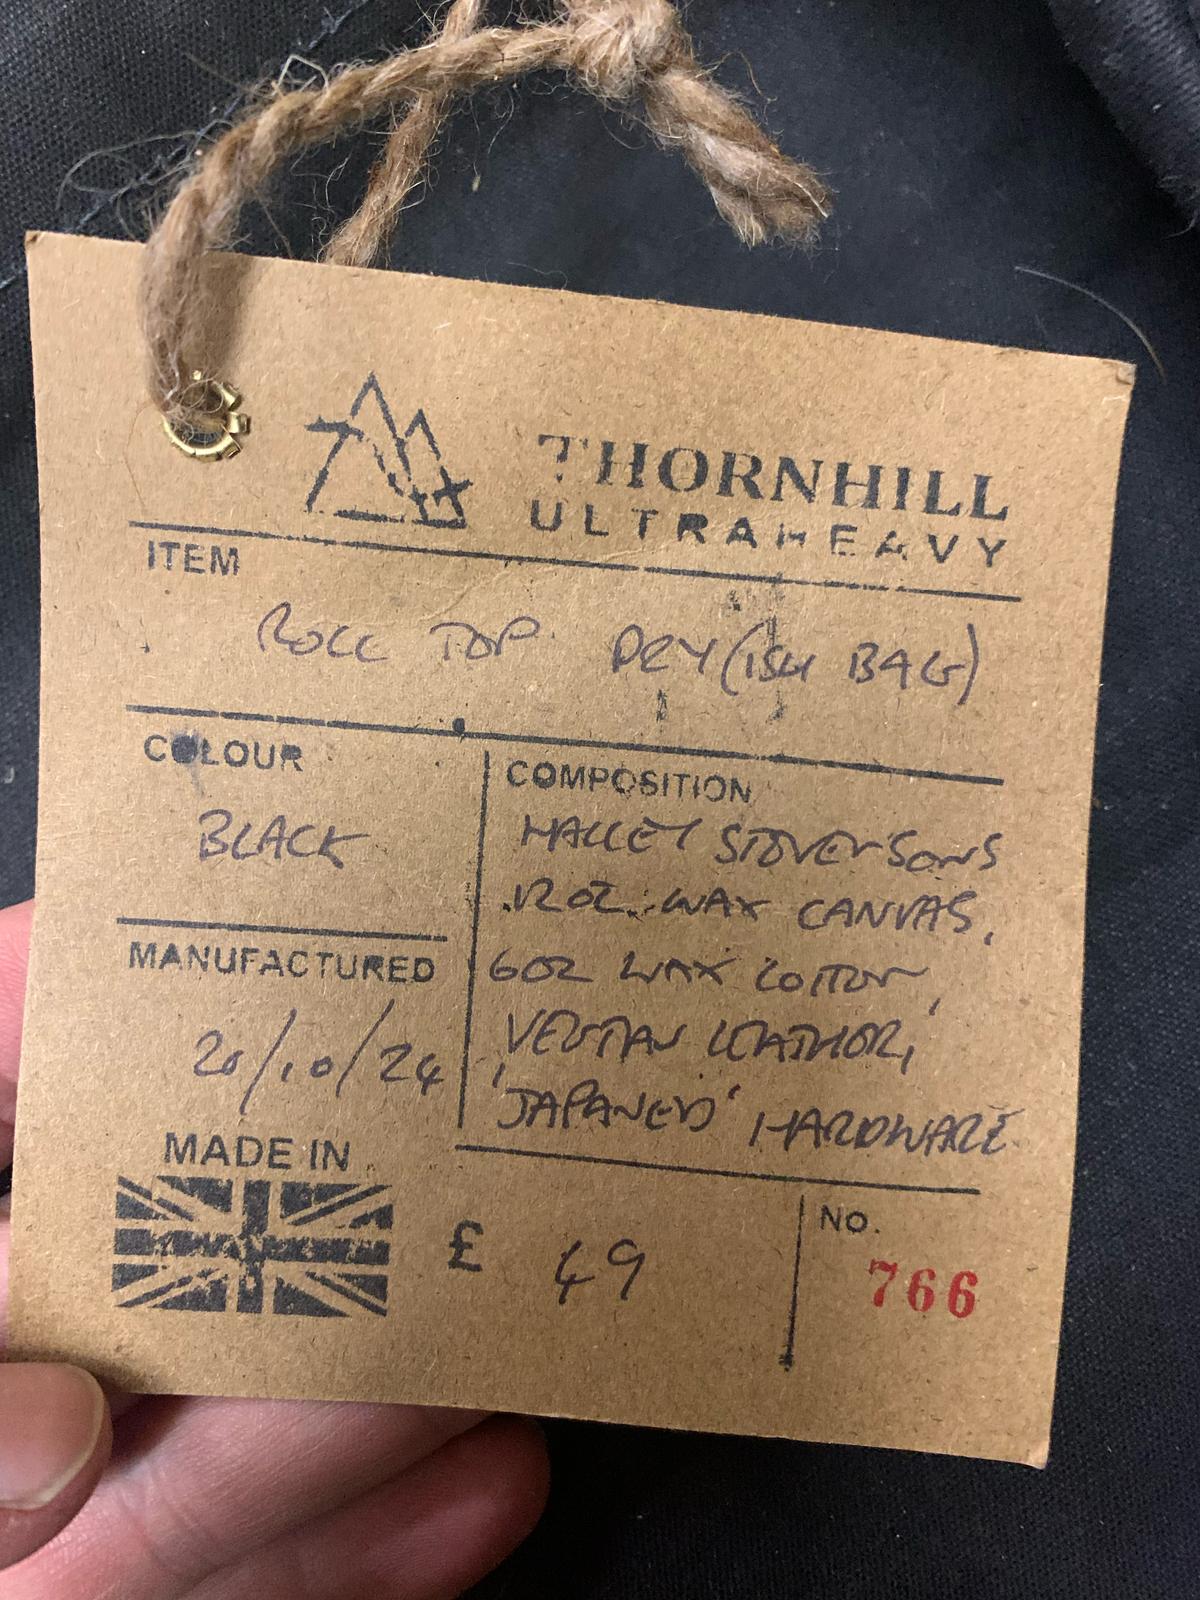 THORNHILL
ULTRAHEAVY
ITEM
ROLL TOP DRY(ISH BAG)
COLOUR
BLACK
COMPOSITION
HALLEY STEVENSONS
12OZ WAX CANVAS,
6OZ WAX COTTON,
VEGTAN LEATHER,
'JAPANED' HARDWARE
MANUFACTURED
20/10/24
MADE IN
£ 49
NO.
766